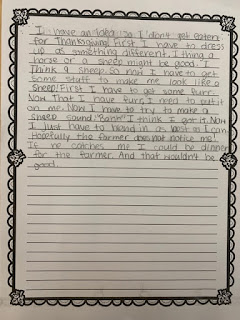 I have an idea so I don't get eaten
for Thanksgiving! First I have to dress
up as something different. I thing a
horse or a sheep might be good. I
Think a sheep. So now I have to get
some stuff to make me look like a
sheep! First I have to get some furr.
Now That I have furr, I need to put it
on me. Now I have to try to make a
sheep sound. "Bahh" I think I got it. Now
I just have to blend in as best as I can.
Hopefully the farmer does not notice me!
If he catches me I could be dinner
for the farmer. And that wouldn't be
good.